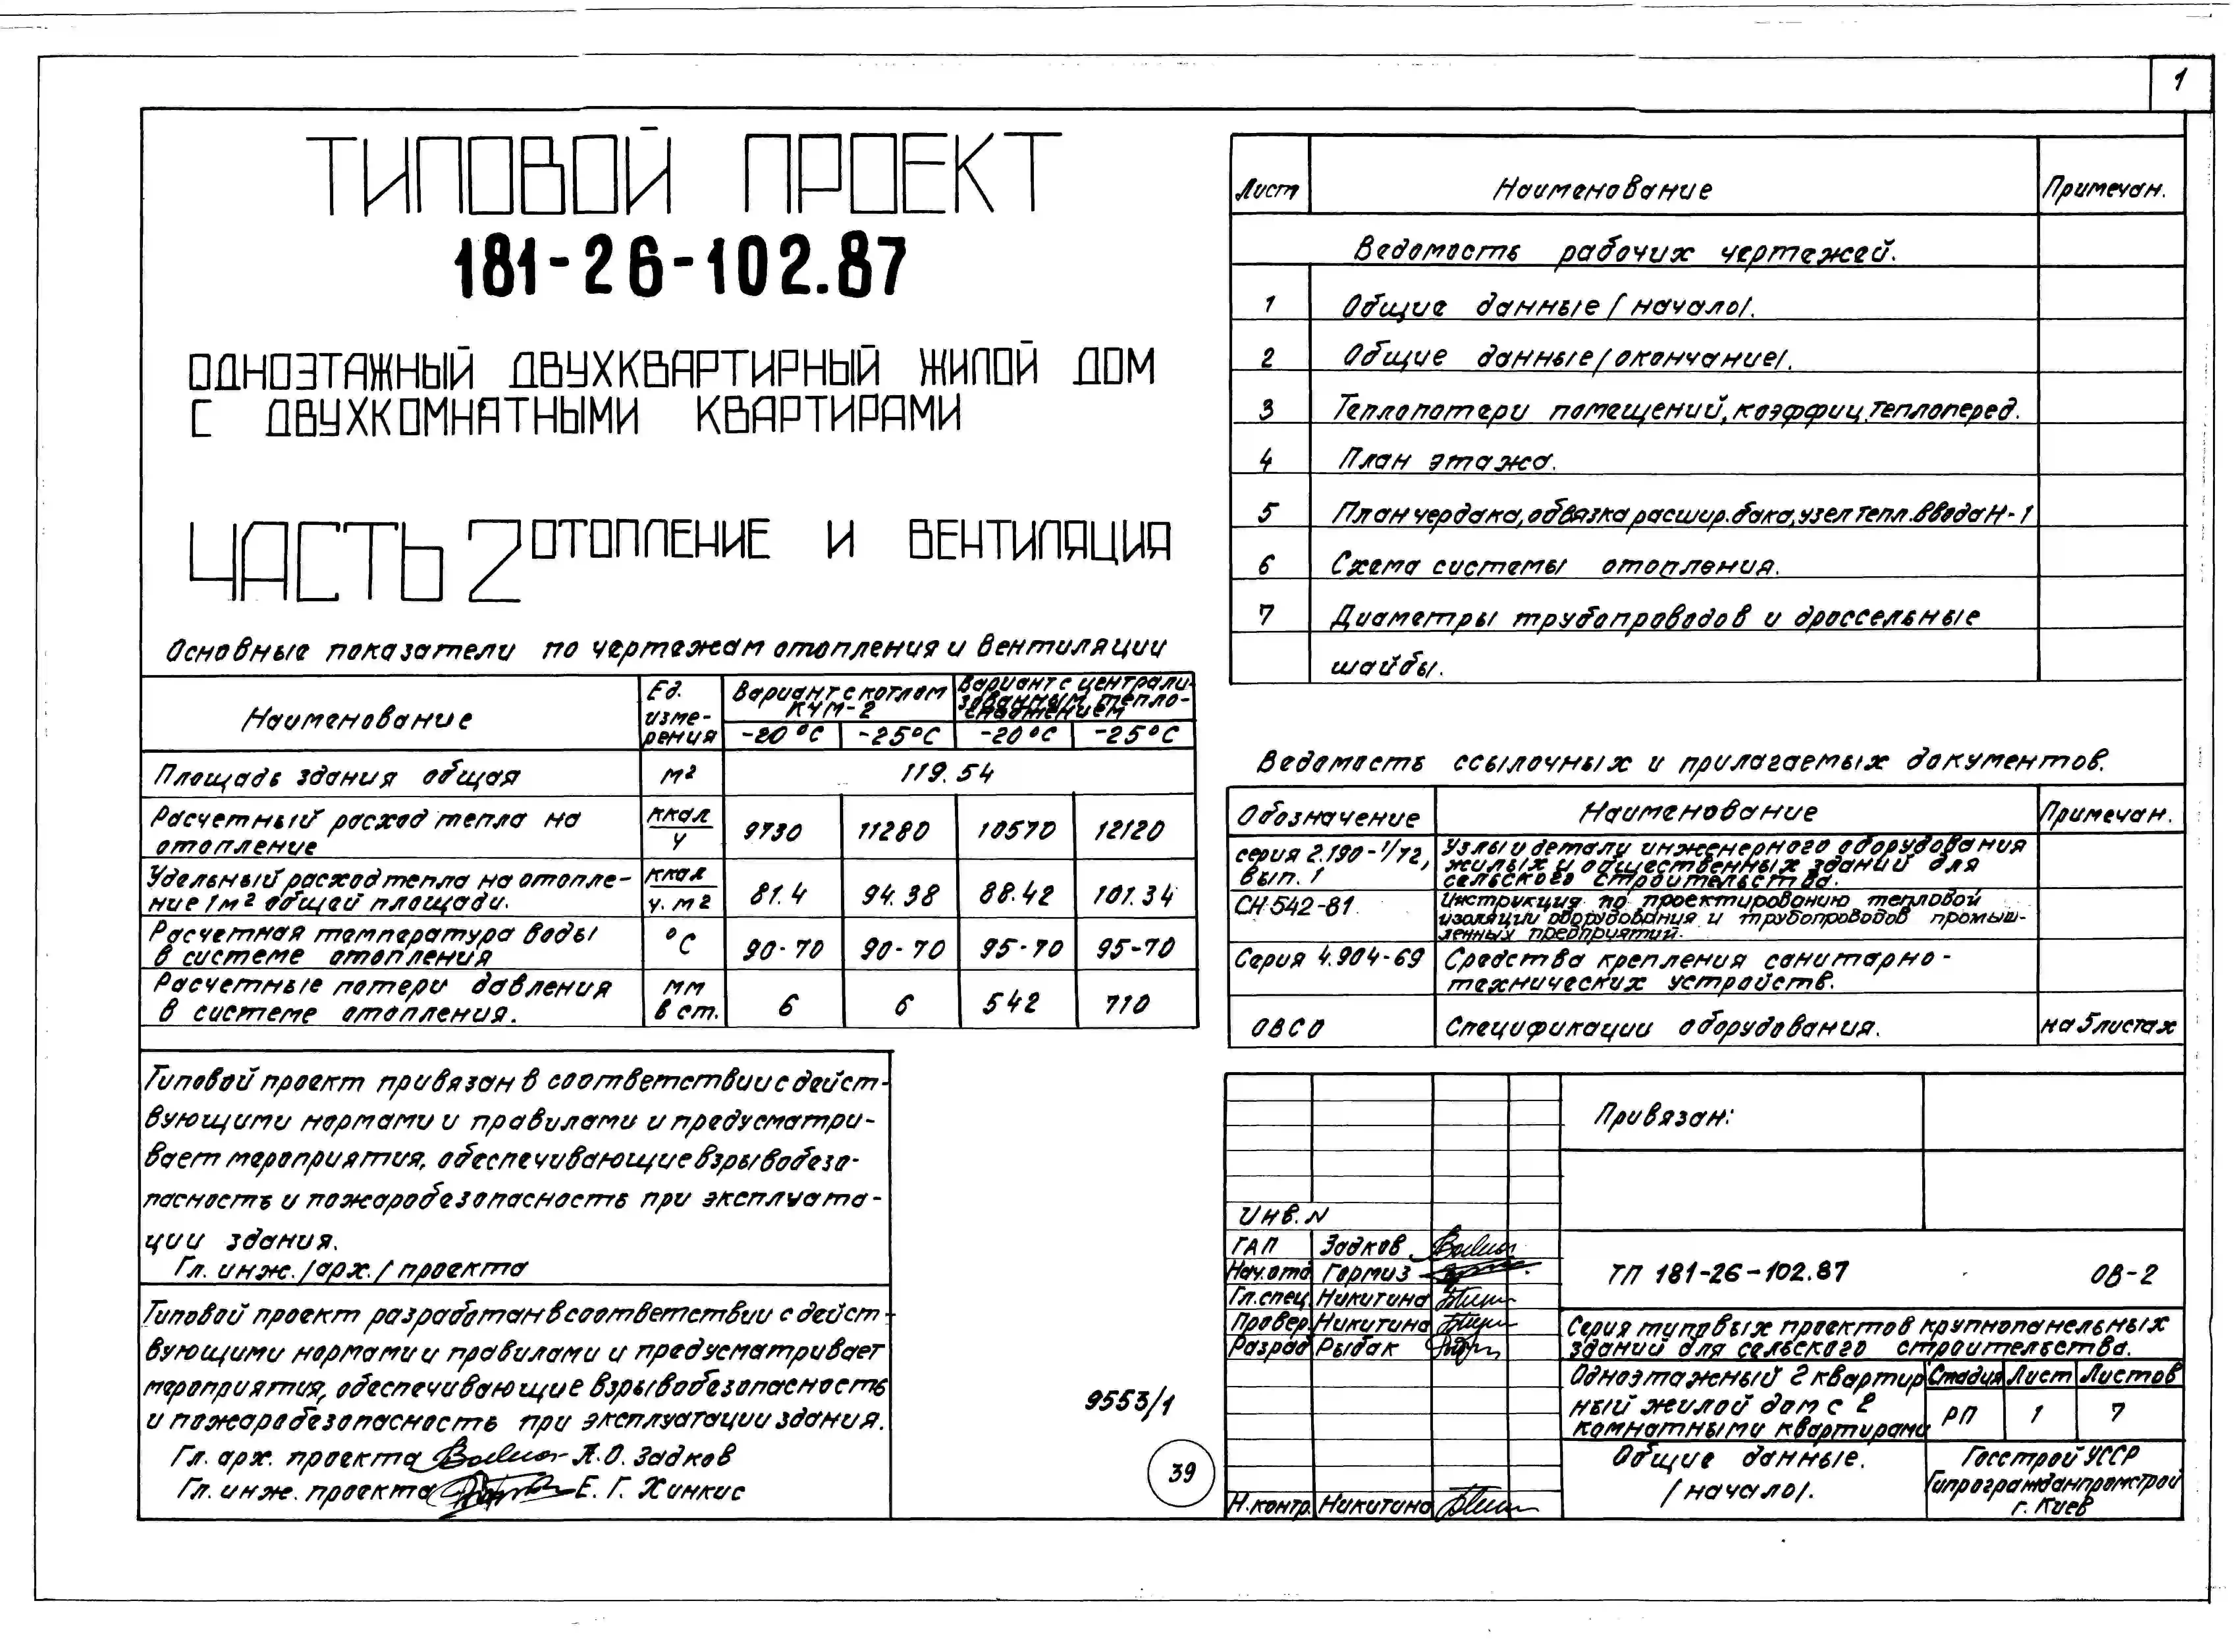 1
ТИПОВОЙ ПРОЕКТ
181-26-102.87
ОДНОЭТАЖНЫЙ ДВУХКВАРТИРНЫЙ ЖИЛОЙ ДОМ
С ДВУХКОМНАТНЫМИ КВАРТИРАМИ
ЧАСТЬ 2 ОТОПЛЕНИЕ И ВЕНТИЛЯЦИЯ
Основные показатели по чертежам отопления и вентиляции
Наименование
Ед.
изме-
рения
Вариант с котлом
КЧМ-2
Вариант с централи-
зованным тепло-
снабжением
-20°С -25°С -20°С -25°С
Площадь здания общая м² 119.54
Расчетный расход тепла на
отопление
ккал
ч
9730 11280 10570 12120
Удельный расход тепла на отопле-
ние 1м² общей площади.
ккал
ч. м2
81.4 94.38 88.42 101.34
Расчетная температура воды
в системе отопления
°С
90-70 90-70 95-70 95-70
Расчетные потери давления
в системе отопления.
мм
в ст.
6 6 542 710
Типовой проект привязан в соответствии с дейст-
вующими нормами и правилами и предусматри-
вает мероприятия, обеспечивающие взрывобезо-
пасность и пожаробезопасность при эксплуата-
ции здания.
Гл. инж. /арх./ проекта
Типовой проект разработан в соответствии с дейст-
вующими нормами и правилами и предусматривает
мероприятия, обеспечивающие взрывобезопасность
и пожаробезопасность при эксплуатации здания.
Гл. арх. проекта Л.О. Задков
Гл. инж. проекта Е. Г. Хинкис
9553/1
39
Лист Наименование Примечан.
Ведомость рабочих чертежей.
1 Общие данные /начало/.
2 Общие данные /окончание/.
3 Теплопотери помещений, коэффиц. теплоперед.
4 План этажа.
5 План чердака, обвязка расшир. бака, узел тепл. ввода Н-1
6 Схема системы отопления.
7 Диаметры трубопроводов и дроссельные
шайбы.
Ведомость ссылочных и прилагаемых документов.
Обозначение Наименование Примечан.
серия 2.190-1/72,
вып. 1
Узлы и детали инженерного оборудования
жилых и общественных зданий для
сельского строительства.
СН 542-81
Инструкция по проектированию тепловой
изоляции оборудования и трубопроводов промыш-
ленных предприятий.
Серия 4.904-69
Средства крепления санитарно-
технических устройств.
ОВСО Спецификации оборудования. на 5 листах
Привязан:
Инв. N
ГАП Задков
Нач.отд Гормиз
Гл.спец. Никитина
Провер. Никитина
Разраб Рыбак
Н.контр. Никитина
ТП 181-26-102.87 ОВ-2
Серия типовых проектов крупнопанельных
зданий для сельского строительства.
Одноэтажный 2 квартир
ный жилой дом с 2
комнатными квартирами
Стадия Лист Листов
РП 1 7
Общие данные.
/начало/.
Госстрой УССР
Гипрогражданпромстрой
г. Киев